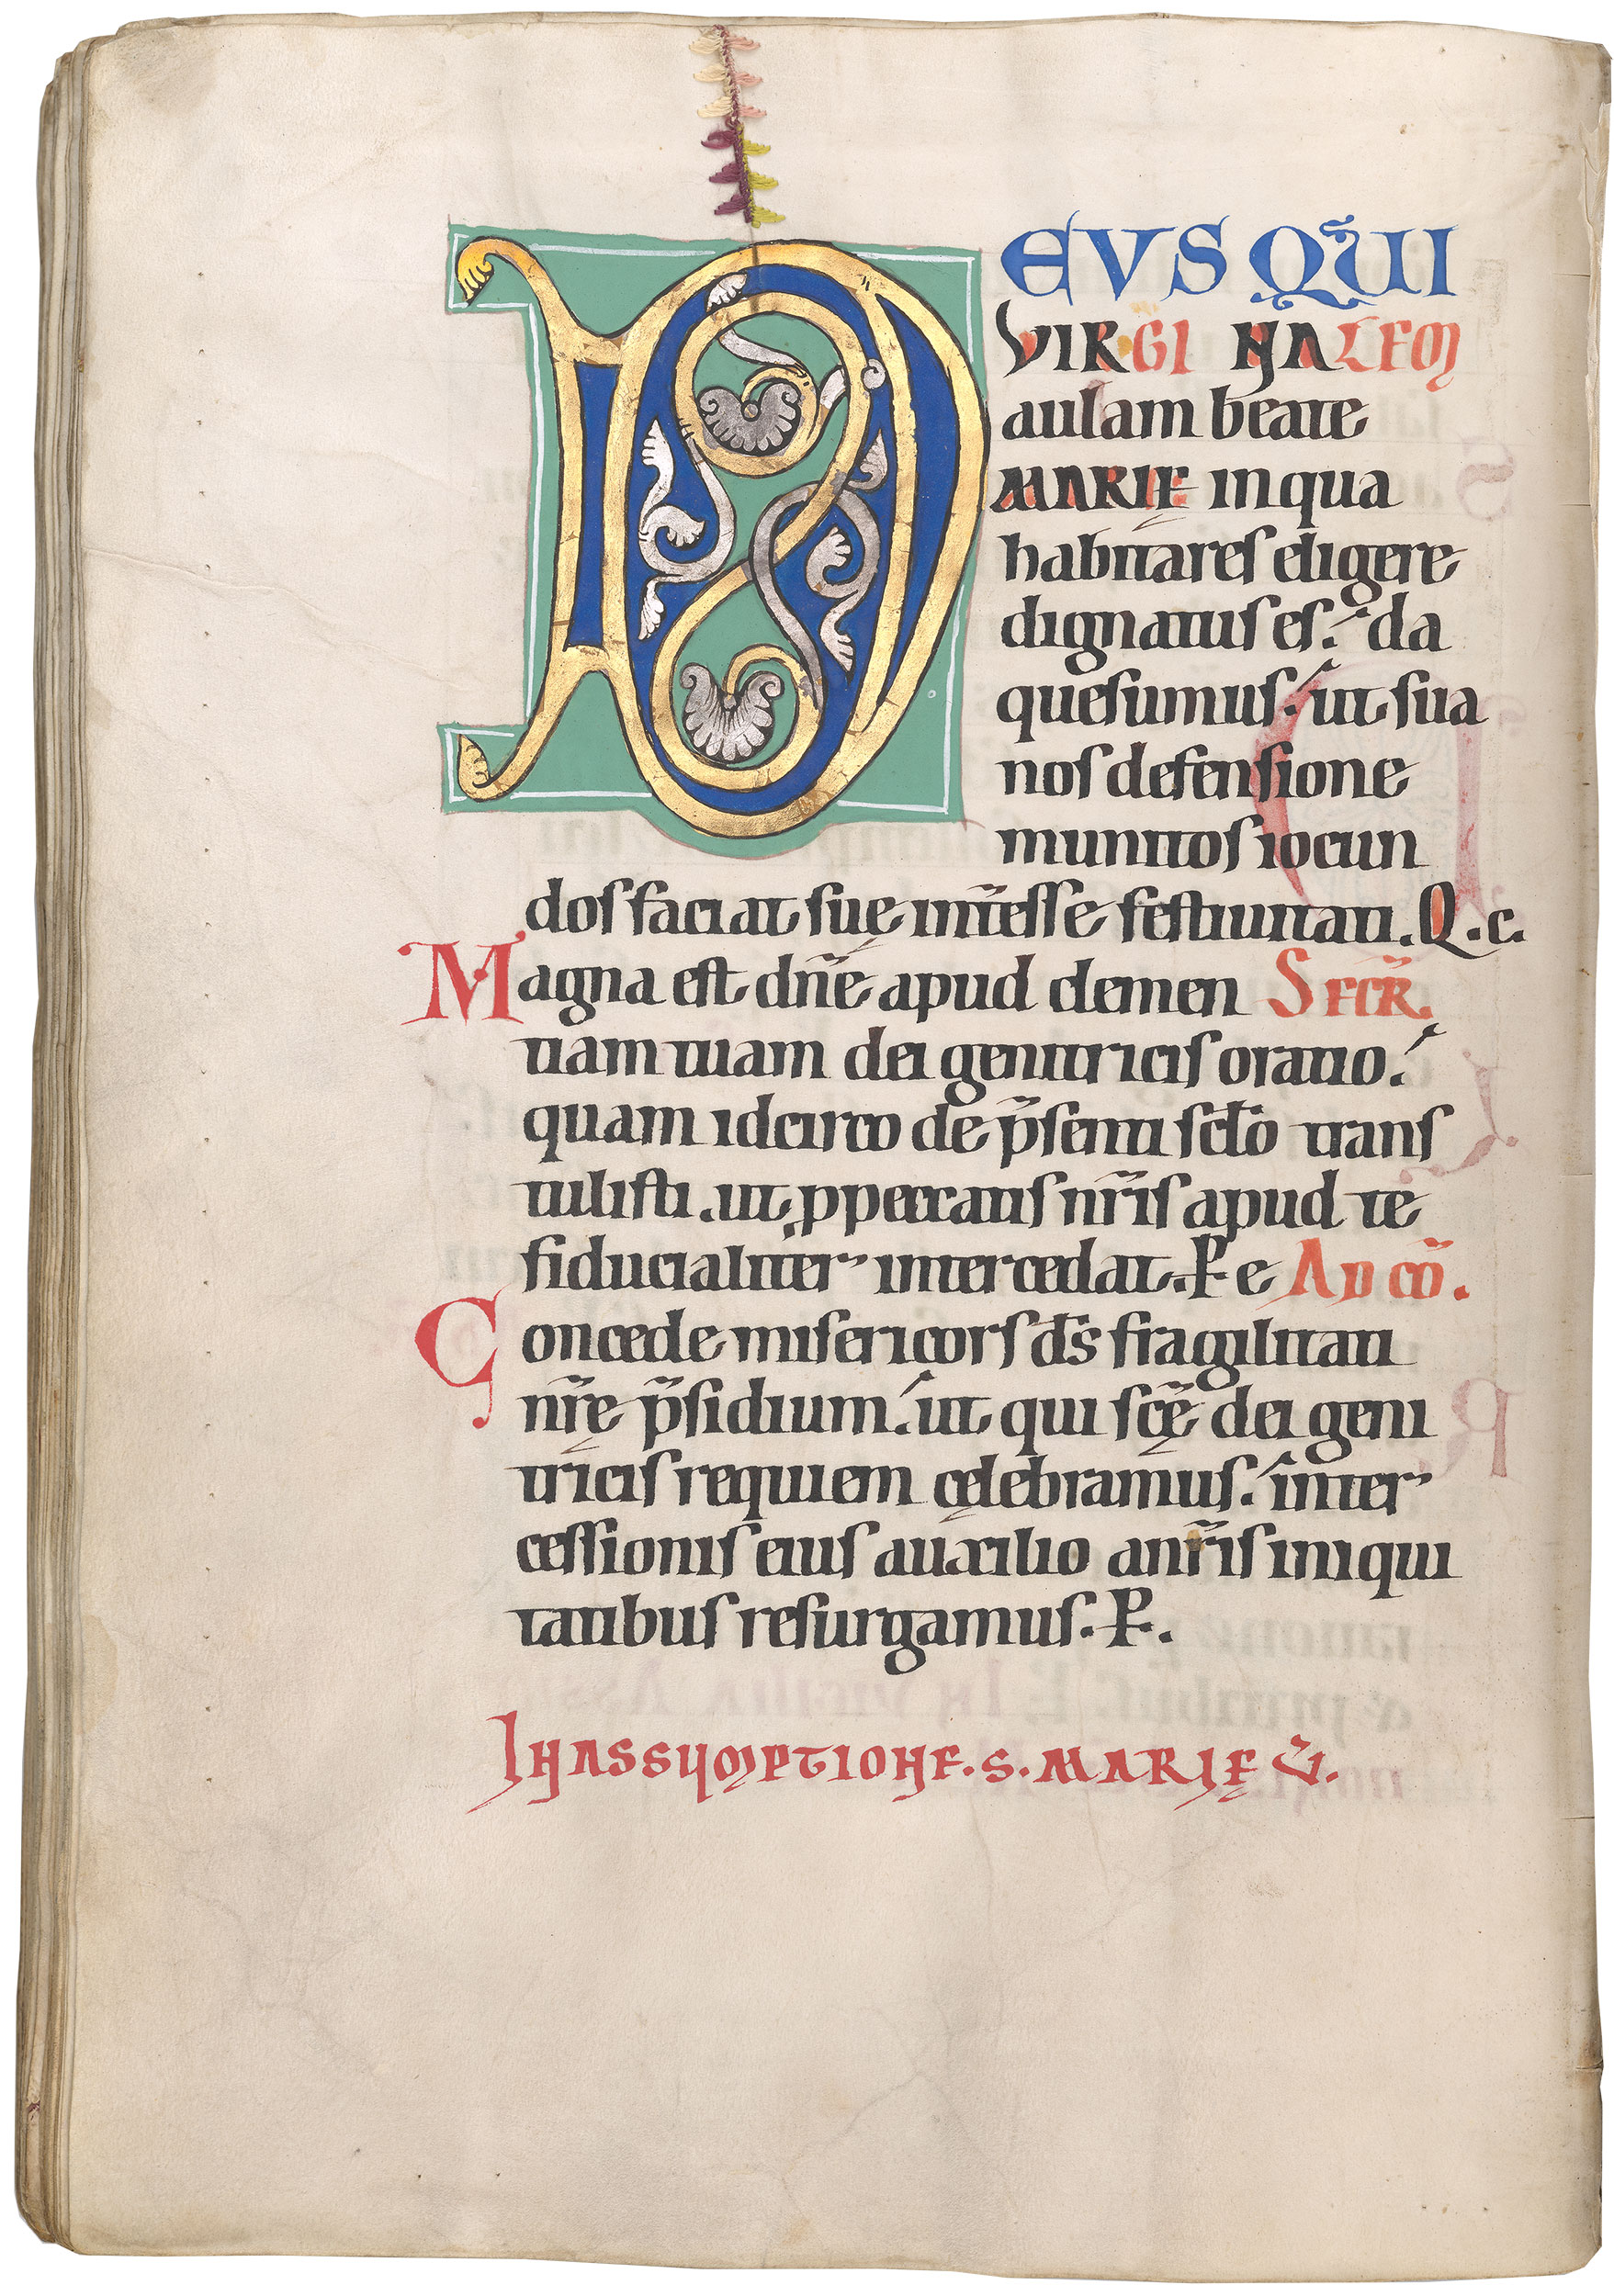 DEVS QUI
VIRGINALEM
aulam beate
MARIĘ in qua
habitares eligere
dignatus es. da
quesumus. ut sua
nos defensione
munitos iocun
dos faciat suę int̄esse festiuitati. Q. c.
Magna est dn̄e apud clemen SECR̄.
tiam tuam dei genitricis oratio.
quam idcirco de p̄senti scl̄o trans
tulisti. ut p peccatis nr̄is apud te
fiducialit̄er intercedat. P e AD CŌ.
Concede misericors ds̄ fragilitati
nr̄ę p̄sidium. ut qui sc̄ę dei geni
tricis requiem cęlebramus. inter
cessionis eius auxilio a nr̄is iniqui
tatibus resurgamus. P.
IN ASSUMPTIONE. S. MARIĘ V̄.